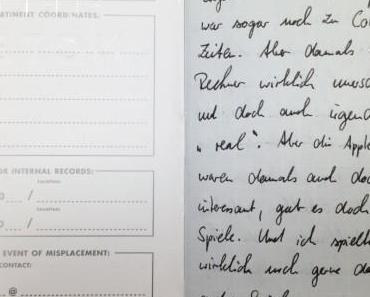 RTINENT COORDINATES:
OR INTERNAL RECORDS:
Location:
/
Location:
/
EVENT OF MISPLACEMENT:
CONTACT:
@
war sogar noch zu Co
Zeiten. Aber damals
Rechner wirklich unersc
und doch auch irgend
„real". Aber die Apple
waren damals auch doc
interessant, gab es doch
Spiele. Und ich spielt
wirklich noch gerne da